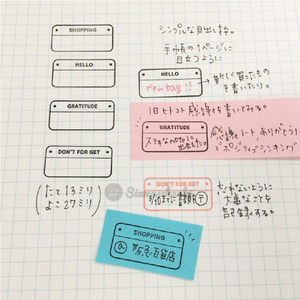 SHOPPING
シンプルな見出し枠。
手帳の1ページに
目立つように
HELLO
HELLO
New bag !!
→新しく買ったもの
を書いたり。
GRATITUDE
1日ヒトコト感謝を書いてみる。
GRATITUDE
ステキなノートに出会えた。
感謝ノートありがとう!
ポジティブシンキング
DON'T FOR GET
(たて13ミリ
よこ27ミリ)
DON'T FOR GET
わすれないように
大事なことを
SHOPPING
阪急百貨店